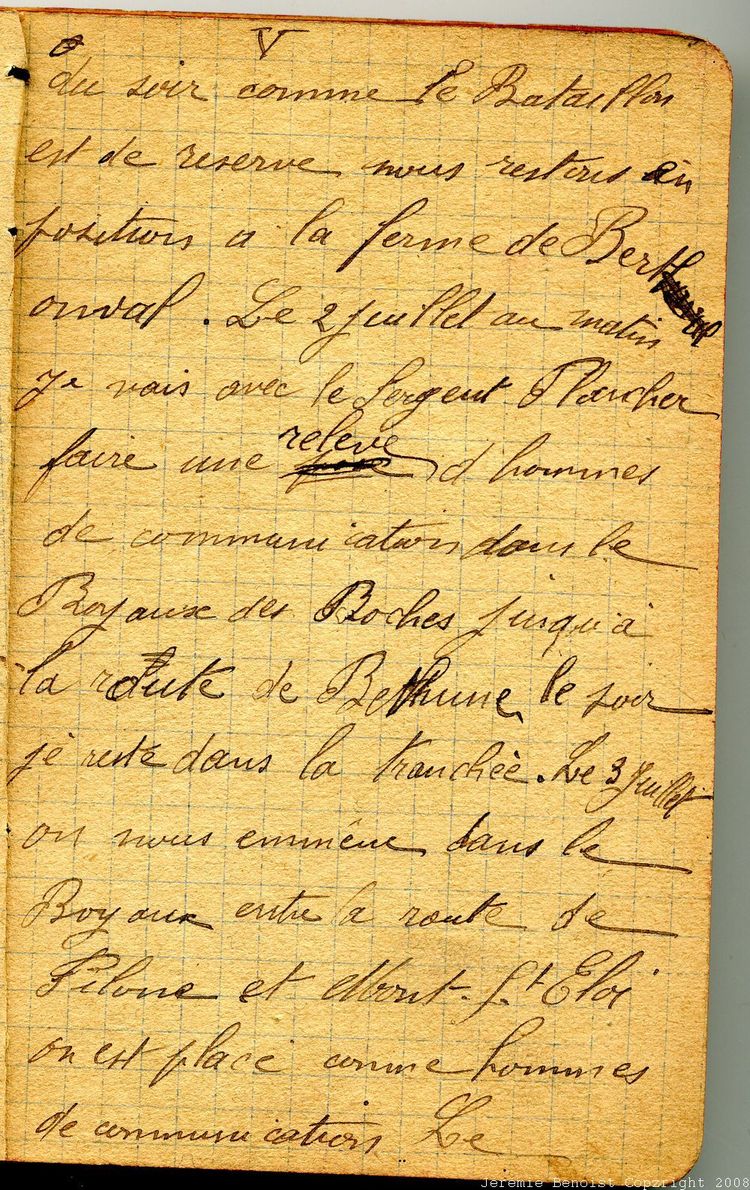 V
du soir comme le Bataillon
est de reserve nous restons en
positions a la ferme de Berth
onval. Le 2 juillet au matin
je vais avec le Sergent Plancher
faire une releve d hommes
de communication dans le
Boyaux des Boches jusqu'à
la route de Bethune le soir
je reste dans la tranchée. Le 3 Juillet
on nous emmène dans le
Boyaux entre la route de
et Mont-St Eloi
on est placé comme hommes
de communication Le
Jeremie Benoist Copzright 2008